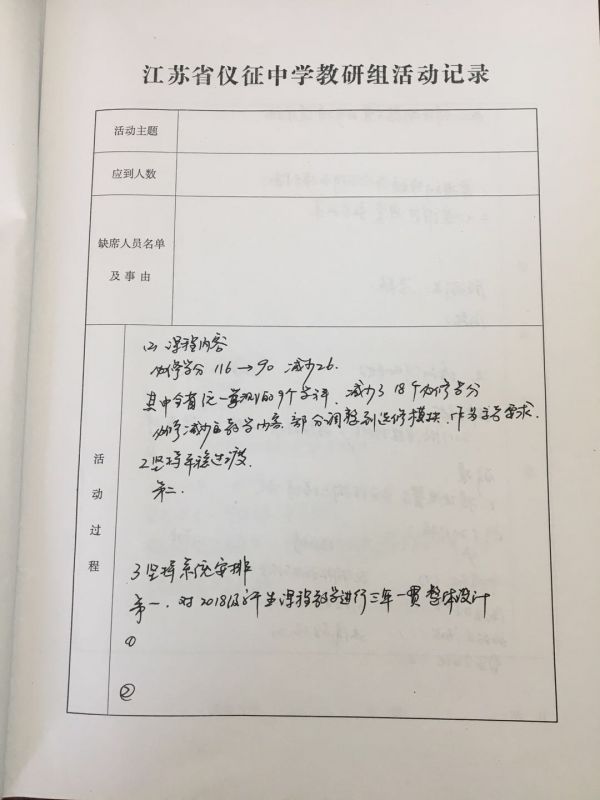 江苏省仪征中学教研组活动记录
活动主题
应到人数
缺席人员名单
及事由
活动过程
(2) 课程内容
必修学分 116→90 减少26.
其中全省统一要求的9个学科,减少了18个必修学分
必修减少的教学内容,部分调整到选修模块,作为主要要求.
2坚持平稳过渡.
第二.
3坚持系统安排
第一.对2018级新生课程教学进行三年一贯整体设计
①
②